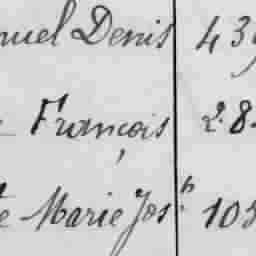 nuel Denis 439
François 28.
te Marie Jos.h 105